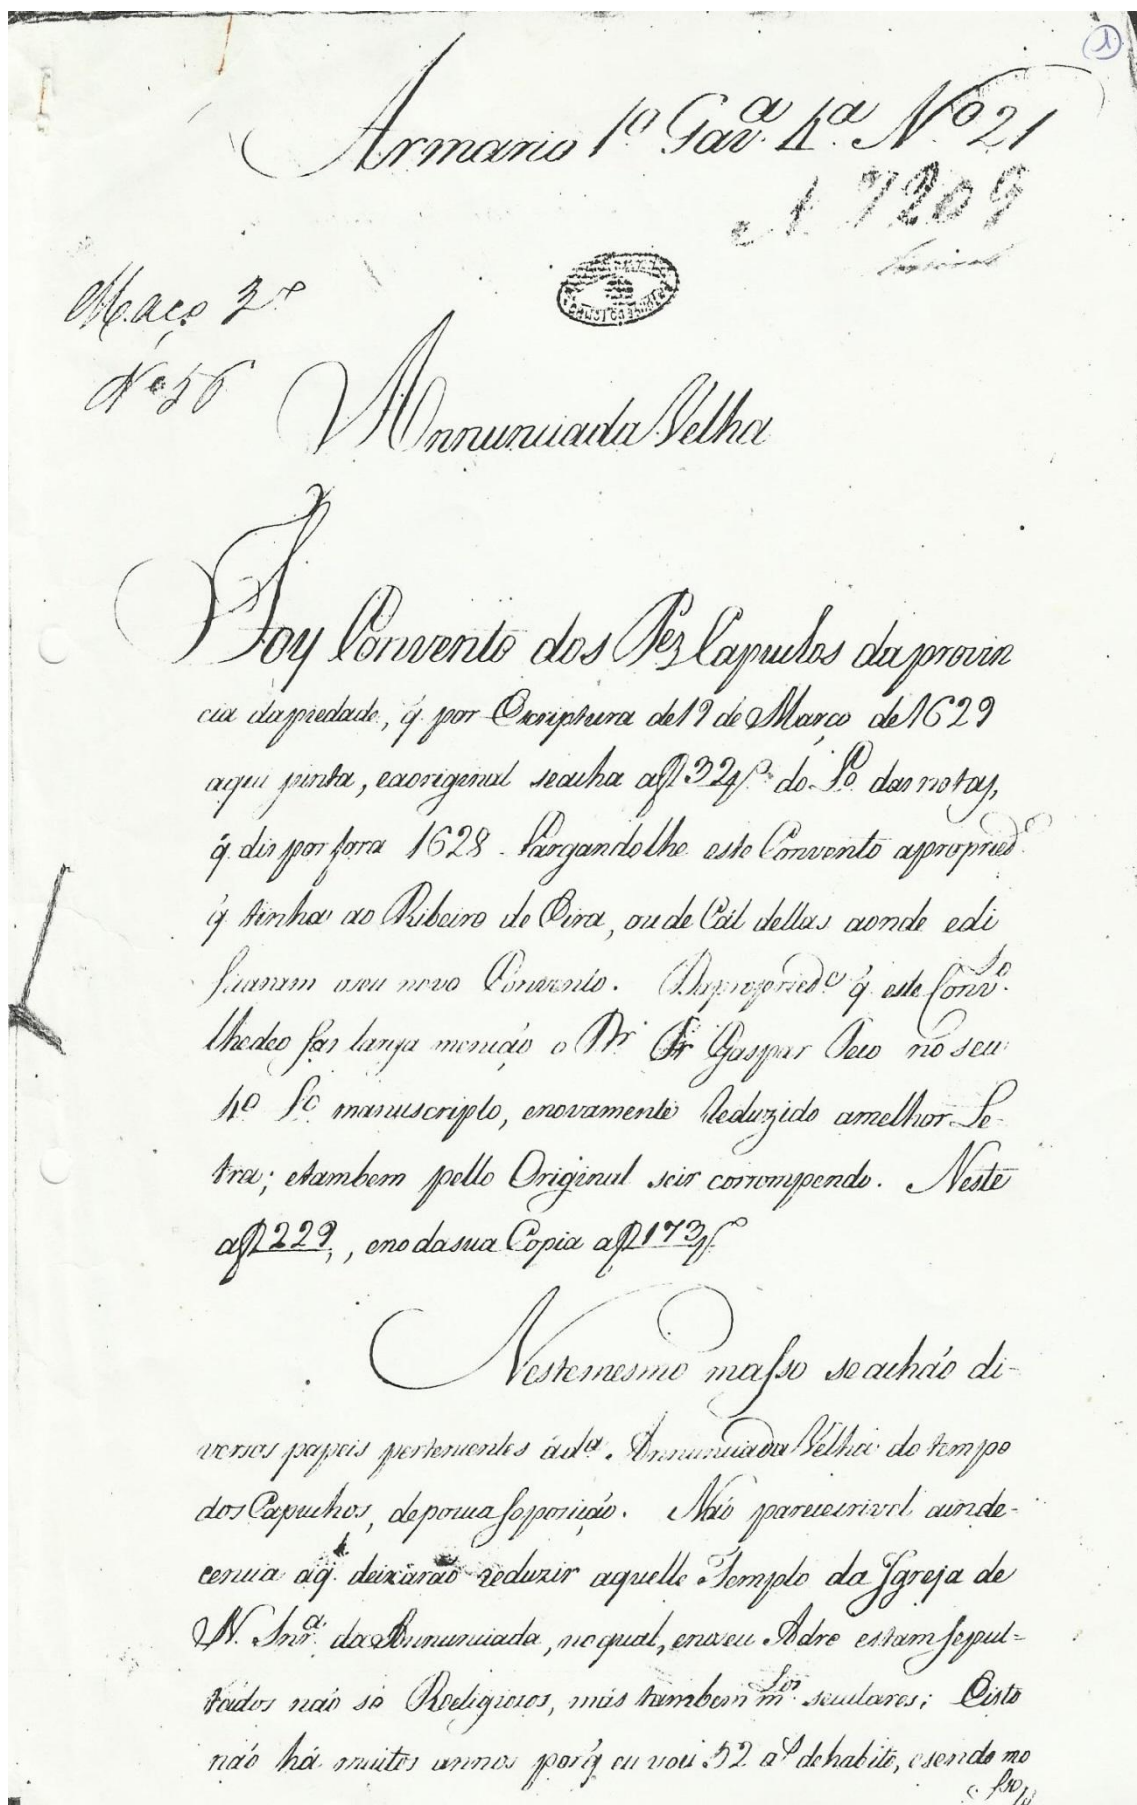 1
Armario 1º Gavª. 4ª. Nº 21
N. 7209
Maço 3º
Nº 56
Annunciada Velha
Foy Convento dos Pes Capuchos da provin
cia dapiedade, q̃ por Escriptura de 19 de Março de 1629
aqui junta, eaoriginal seacha aff 32 do Lo. das notas,
q̃ dis por fora 1628. Largandolhe este Convento apropried.e
q̃ tinha ao Ribeiro de Eira, ou de Cal dellas aonde edi
ficaram oseu novo Convento. Dapropried.e q̃ este Conv.to
lhedeo fas larga menção o Pr. Fr Gaspar no seu
4º Lo manuscripto, enovamente Reduzido amelhor Le-
tra; etambem pello Original seir corrompendo. Neste
aff 229, enodasua Copia aff 173
Nestemesmo masso seachão di-
versos papeis pertenentes ádª. Annunciada Velha do tempo
dos Capuchos, depouca soposição. Não pareiecrivel ainde-
cencia aq̃. deixarão reduzir aquelle Templo da Igreja de
N. Snrª. da Annunciada, noqual, enoseu Adro estam sepul=
tados não só Religiosos, más tambem m.tos seculares; Eisto
não há muitos annos porq̃ eu vou 52 aˢ dehabito, esendo mo
sso